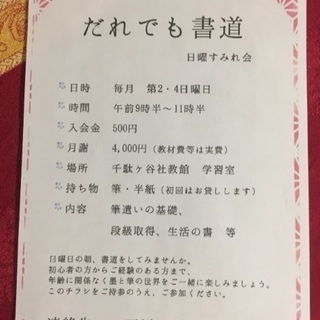 だれでも書道
日曜すみれ会
日時　毎月　第2・4日曜日
時間　午前9時半～11時半
入会金　500円
月謝　4,000円（教材費等は実費）
場所　千駄ヶ谷社教館　学習室
持ち物　筆・半紙（初回はお貸しします）
内容　筆遣いの基礎、
段級取得、生活の書　等
日曜日の朝、書道をしてみませんか。
初心者の方からご経験のある方まで、
年齢に関係なく墨と筆の世界をご一緒に楽しみましょう。
このチラシをご持参のうえ、ご参加ください。